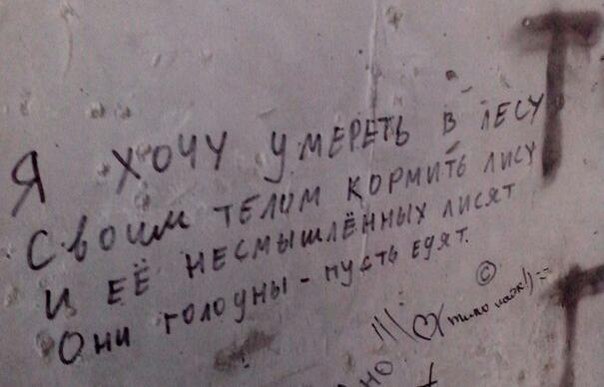 Я ХОЧУ УМЕРЕТЬ В ЛЕСУ
СВОИМ ТЕЛОМ КОРМИТЬ ЛИСУ
И ЕЁ НЕСМЫШЛЁННЫХ ЛИСЯТ
ОНИ ГОЛОДНЫ - ПУСТЬ ЕДЯТ.
©